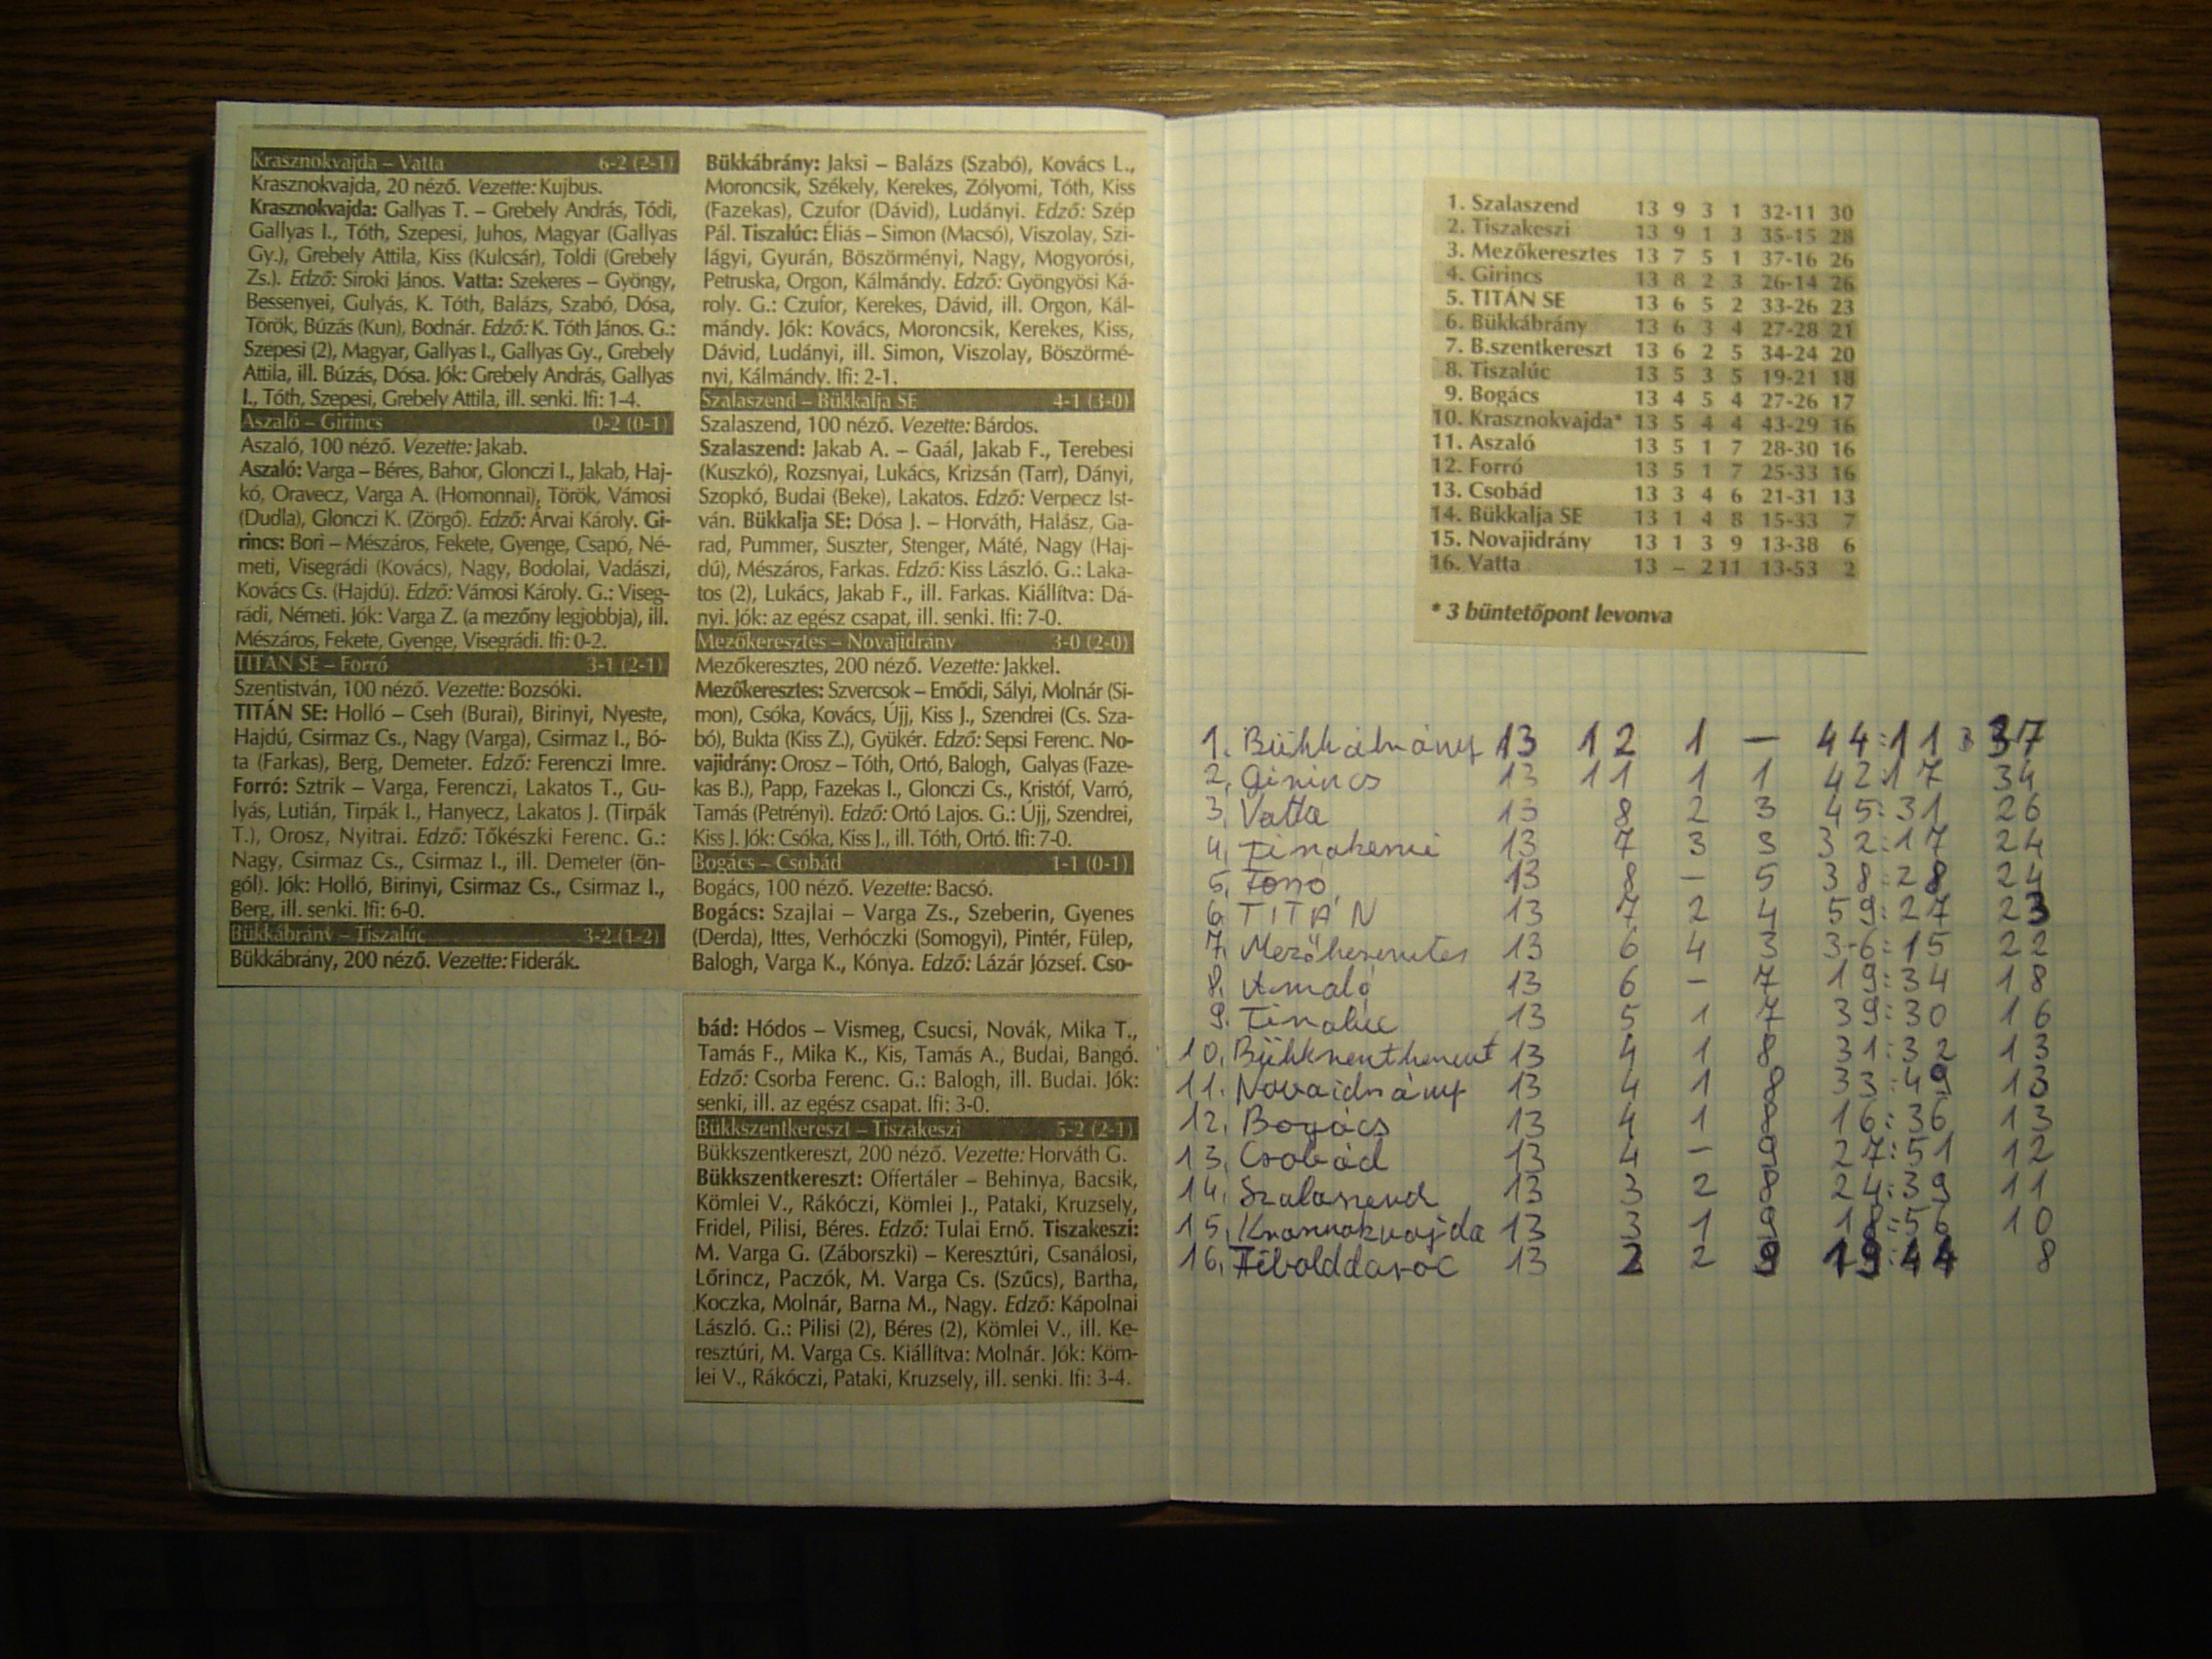 Krasznokvajda – Vatta 6-2 (2-1)
Krasznokvajda, 20 néző. Vezette: Kujbus.
Krasznokvajda: Gallyas T. – Grebely András, Tódi,
Gallyas I., Tóth, Szepesi, Juhos, Magyar (Gallyas
Gy.), Grebely Attila, Kiss (Kulcsár), Toldi (Grebely
Zs.). Edző: Siroki János. Vatta: Szekeres – Gyöngy,
Bessenyei, Gulyás, K. Tóth, Balázs, Szabó, Dósa,
Török, Búzás (Kun), Bodnár. Edző: K. Tóth János. G.:
Szepesi (2), Magyar, Gallyas I., Gallyas Gy., Grebely
Attila, ill. Búzás, Dósa. Jók: Grebely András, Gallyas
I., Tóth, Szepesi, Grebely Attila, ill. senki. Ifi: 1-4.
Aszaló – Girincs 0-2 (0-1)
Aszaló, 100 néző. Vezette: Jakab.
Aszaló: Varga – Béres, Bahor, Glonczi I., Jakab, Haj-
kó, Oravecz, Varga A. (Homonnai), Török, Vámosi
(Dudla), Glonczi K. (Zörgő). Edző: Árvai Károly. Gi-
rincs: Bori – Mészáros, Fekete, Gyenge, Csapó, Né-
meti, Visegrádi (Kovács), Nagy, Bodolai, Vadászi,
Kovács Cs. (Hajdú). Edző: Vámosi Károly. G.: Viseg-
rádi, Németi. Jók: Varga Z. (a mezőny legjobbja), ill.
Mészáros, Fekete, Gyenge, Visegrádi. Ifi: 0-2.
TITÁN SE – Forró 3-1 (2-1)
Szentistván, 100 néző. Vezette: Bozsóki.
TITÁN SE: Holló – Cseh (Burai), Birinyi, Nyeste,
Hajdú, Csirmaz Cs., Nagy (Varga), Csirmaz I., Bó-
ta (Farkas), Berg, Demeter. Edző: Ferenczi Imre.
Forró: Sztrik – Varga, Ferenczi, Lakatos T., Gu-
lyás, Lutián, Tirpák I., Hanyecz, Lakatos J. (Tirpák
T.), Orosz, Nyitrai. Edző: Tőkészki Ferenc. G.:
Nagy, Csirmaz Cs., Csirmaz I., ill. Demeter (ön-
gól). Jók: Holló, Birinyi, Csirmaz Cs., Csirmaz I.,
Berg, ill. senki. Ifi: 6-0.
Bükkábrány – Tiszalúc 3-2 (1-2)
Bükkábrány, 200 néző. Vezette: Fiderák.
Bükkábrány: Jaksi – Balázs (Szabó), Kovács L.,
Moroncsik, Székely, Kerekes, Zólyomi, Tóth, Kiss
(Fazekas), Czufor (Dávid), Ludányi. Edző: Szép
Pál. Tiszalúc: Éliás – Simon (Macsó), Viszolay, Szi-
lágyi, Gyurán, Böszörményi, Nagy, Mogyorósi,
Petruska, Orgon, Kálmándy. Edző: Gyöngyösi Ká-
roly. G.: Czufor, Kerekes, Dávid, ill. Orgon, Kál-
mándy. Jók: Kovács, Moroncsik, Kerekes, Kiss,
Dávid, Ludányi, ill. Simon, Viszolay, Böszörmé-
nyi, Kálmándy. Ifi: 2-1.
Szalaszend – Bükkalja SE 4-1 (3-0)
Szalaszend, 100 néző. Vezette: Bárdos.
Szalaszend: Jakab A. – Gaál, Jakab F., Terebesi
(Kuszkó), Rozsnyai, Lukács, Krizsán (Tarr), Dányi,
Szopkó, Budai (Beke), Lakatos. Edző: Verpecz Ist-
ván. Bükkalja SE: Dósa J. – Horváth, Halász, Ga-
rad, Pummer, Suszter, Stenger, Máté, Nagy (Haj-
dú), Mészáros, Farkas. Edző: Kiss László. G.: Laka-
tos (2), Lukács, Jakab F., ill. Farkas. Kiállítva: Dá-
nyi. Jók: az egész csapat, ill. senki. Ifi: 7-0.
Mezőkeresztes – Novajidrány 3-0 (2-0)
Mezőkeresztes, 200 néző. Vezette: Jakkel.
Mezőkeresztes: Szvercsok – Emődi, Sályi, Molnár (Si-
mon), Csóka, Kovács, Újj, Kiss J., Szendrei (Cs. Sza-
bó), Bukta (Kiss Z.), Gyükér. Edző: Sepsi Ferenc. No-
vajidrány: Orosz – Tóth, Ortó, Balogh, Galyas (Faze-
kas B.), Papp, Fazekas I., Glonczi Cs., Kristóf, Varró,
Tamás (Petrényi). Edző: Ortó Lajos. G.: Újj, Szendrei,
Kiss J. Jók: Csóka, Kiss J., ill. Tóth, Ortó. Ifi: 7-0.
Bogács – Csobád 1-1 (0-1)
Bogács, 100 néző. Vezette: Bacsó.
Bogács: Szajlai – Varga Zs., Szeberin, Gyenes
(Derda), Ittes, Verhóczki (Somogyi), Pintér, Fülep,
Balogh, Varga K., Kónya. Edző: Lázár József. Cso-
bád: Hódos – Vismeg, Csucsi, Novák, Mika T.,
Tamás F., Mika K., Kis, Tamás A., Budai, Bangó.
Edző: Csorba Ferenc. G.: Balogh, ill. Budai. Jók:
senki, ill. az egész csapat. Ifi: 3-0.
Bükkszentkereszt – Tiszakeszi 5-2 (2-1)
Bükkszentkereszt, 200 néző. Vezette: Horváth G.
Bükkszentkereszt: Offertáler – Behinya, Bacsik,
Kömlei V., Rákóczi, Kömlei J., Pataki, Kruzsely,
Fridel, Pilisi, Béres. Edző: Tulai Ernő. Tiszakeszi:
M. Varga G. (Záborszki) – Keresztúri, Csanálosi,
Lőrincz, Paczók, M. Varga Cs. (Szűcs), Bartha,
Koczka, Molnár, Barna M., Nagy. Edző: Kápolnai
László. G.: Pilisi (2), Béres (2), Kömlei V., ill. Ke-
resztúri, M. Varga Cs. Kiállítva: Molnár. Jók: Köm-
lei V., Rákóczi, Pataki, Kruzsely, ill. senki. Ifi: 3-4.
1. Szalaszend 13 9 3 1 32-11 30
2. Tiszakeszi 13 9 1 3 35-15 28
3. Mezőkeresztes 13 7 5 1 37-16 26
4. Girincs 13 8 2 3 26-14 26
5. TITÁN SE 13 6 5 2 33-26 23
6. Bükkábrány 13 6 3 4 27-28 21
7. B.szentkereszt 13 6 2 5 34-24 20
8. Tiszalúc 13 5 3 5 19-21 18
9. Bogács 13 4 5 4 27-26 17
10. Krasznokvajda* 13 5 4 4 43-29 16
11. Aszaló 13 5 1 7 28-30 16
12. Forró 13 5 1 7 25-33 16
13. Csobád 13 3 4 6 21-31 13
14. Bükkalja SE 13 1 4 8 15-33 7
15. Novajidrány 13 1 3 9 13-38 6
16. Vatta 13 – 2 11 13-53 2
* 3 büntetőpont levonva
1. Bükkábrány 13 12 1 – 44:11 37
2. Girincs 13 11 1 1 42:17 34
3. Vatta 13 8 2 3 45:31 26
4. Tiszakeszi 13 7 3 3 32:17 24
5. Forró 13 8 – 5 38:28 24
6. TITÁN 13 7 2 4 59:27 23
7. Mezőkeresztes 13 6 4 3 36:15 22
8. Aszaló 13 6 – 7 19:34 18
9. Tiszalúc 13 5 1 7 39:30 16
10. Bükkszentkereszt 13 4 1 8 31:32 13
11. Novaidrány 13 4 1 8 33:49 13
12. Bogács 13 4 1 8 16:36 13
13. Csobád 13 4 – 9 27:51 12
14. Szalaszend 13 3 2 8 24:39 11
15. Krasznokvajda 13 3 1 9 18:56 10
16. Tibolddaróc 13 2 2 9 19:44 8